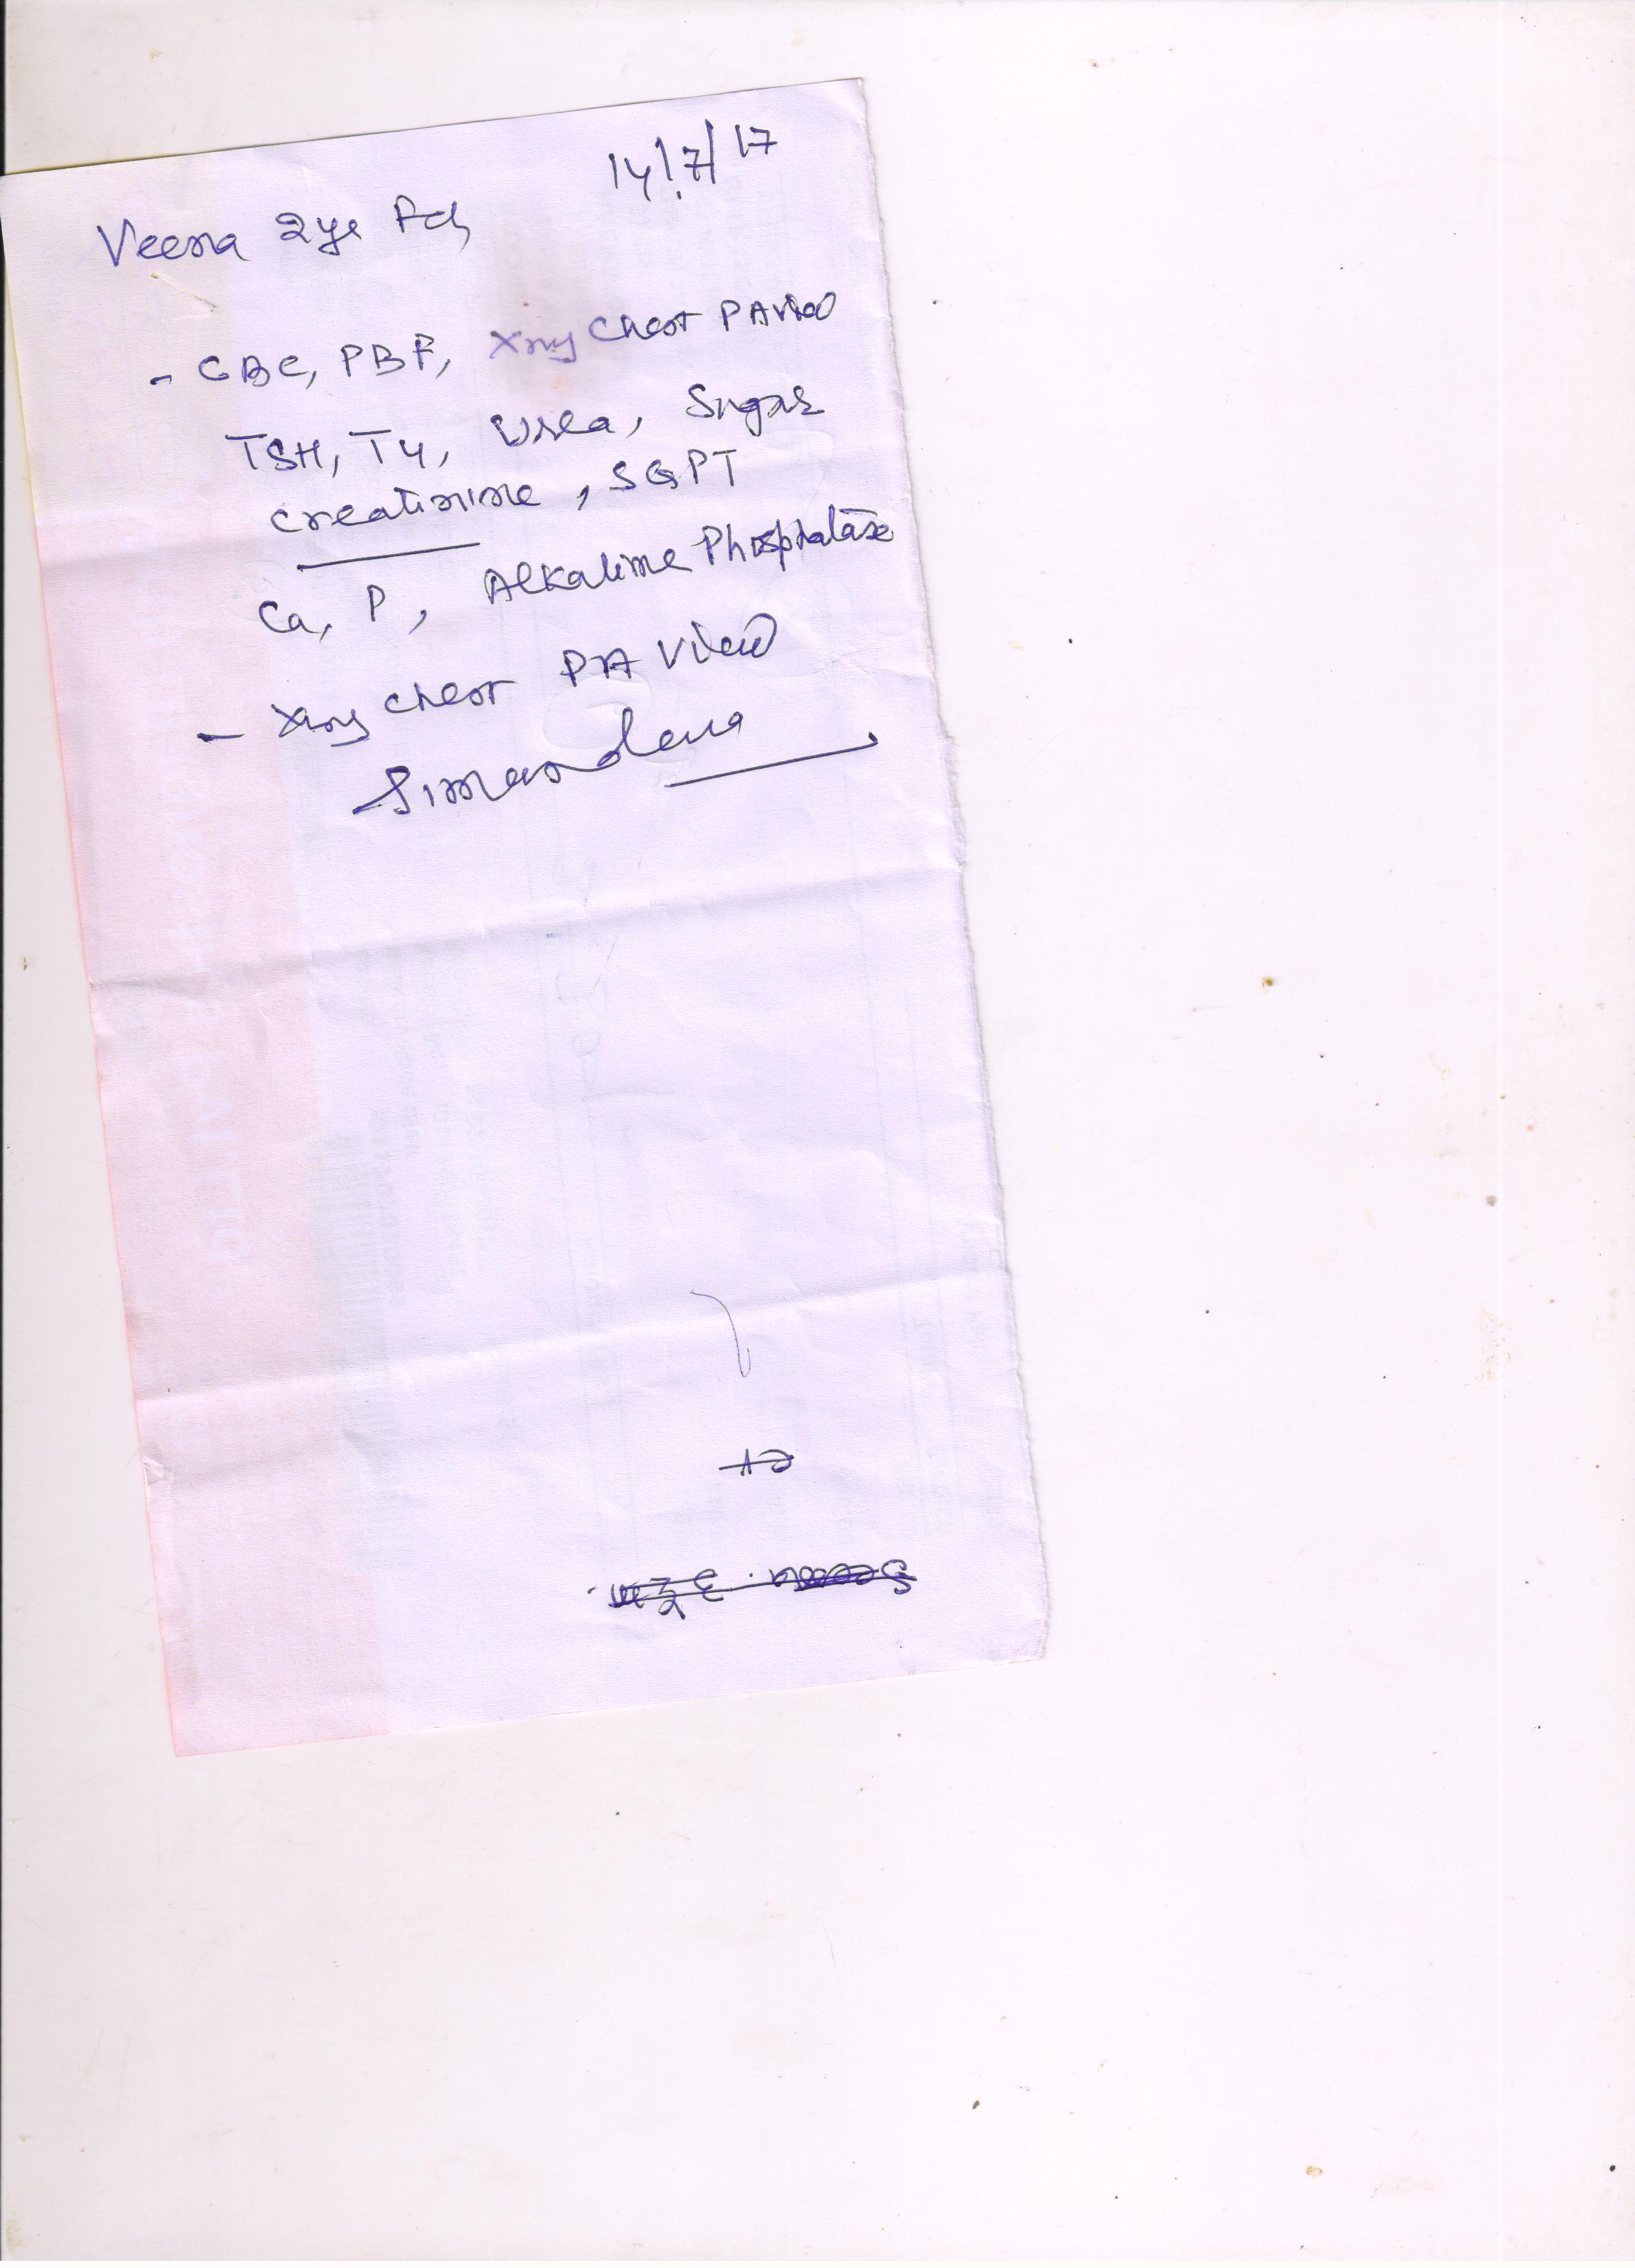 14/7/17
Veena 2yr Fch
- CBC, PBF, Xray Chest PA view
TSH, T4, Urea, Sugar
Creatinine, SGPT
Ca, P, Alkaline Phosphatase
- Xray Chest PA View